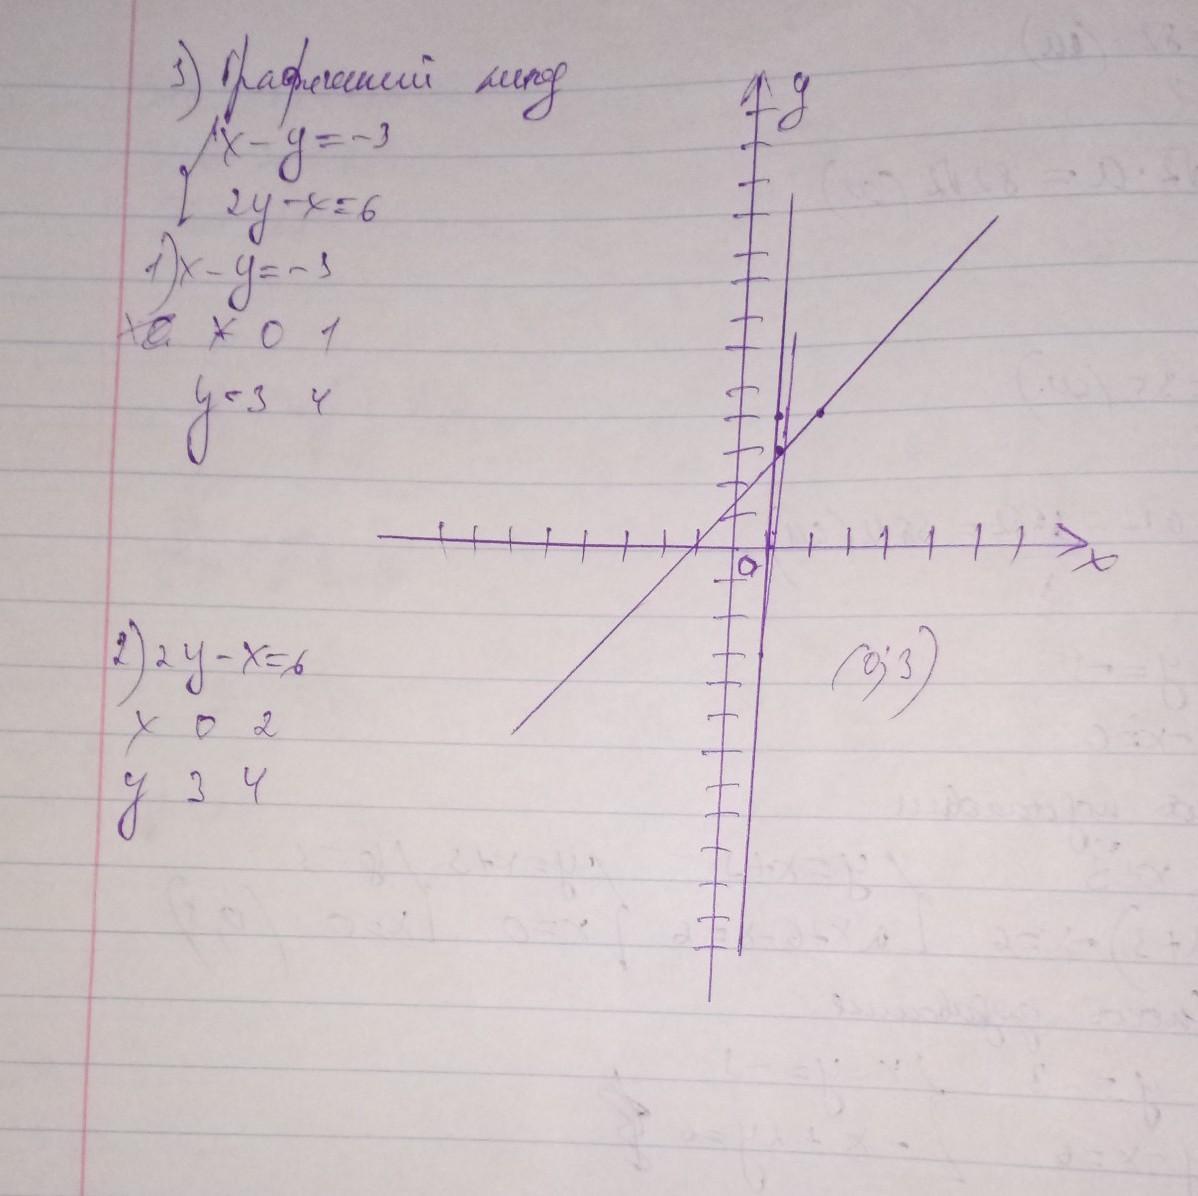 3) Графический метод
{ x - y = -3
2y - x = 6
1) x - y = -3
x 0 1
y = 3 4
y
0
x
2) 2y - x = 6
x 0 2
y 3 4
(0; 3)